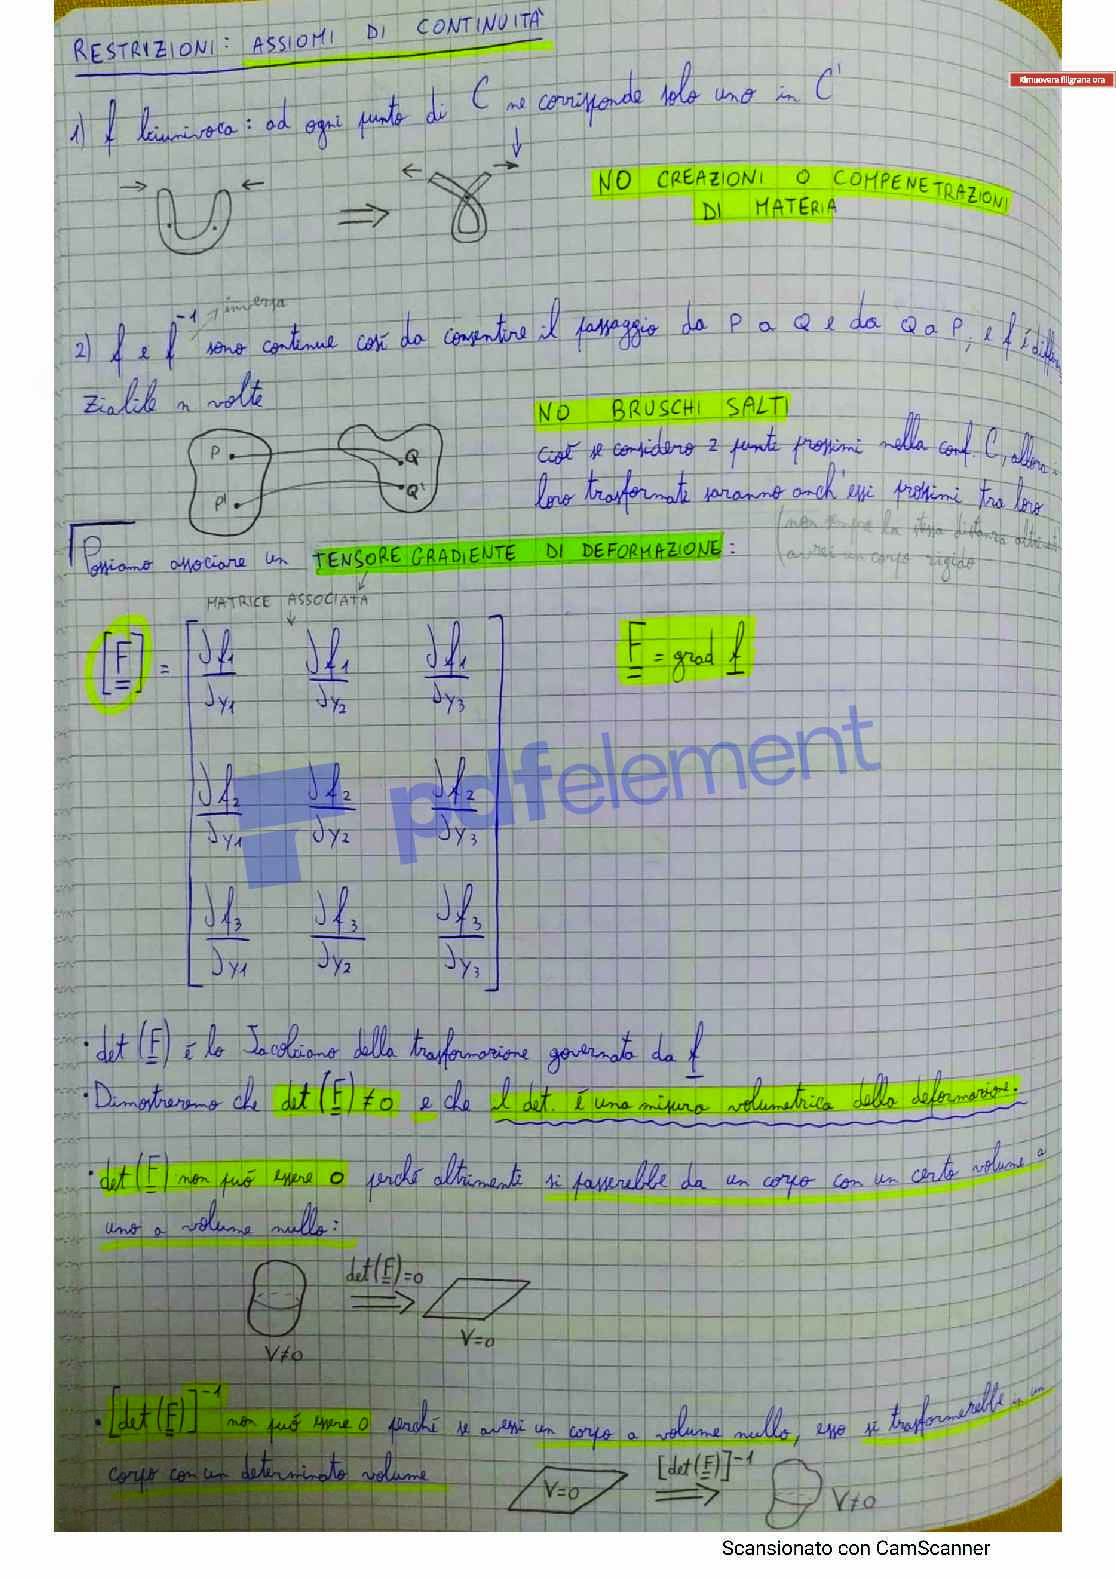 RESTRIZIONI: ASSIOMI DI CONTINUITÀ
Rimuovere filigrana ora
1) f biunivoca: ad ogni punto di C ne corrisponde solo uno in C'
NO CREAZIONI O COMPENETRAZIONI
DI MATERIA
inversa
2) f e f⁻¹ sono continue così da consentire il passaggio da P a Q e da Q a P, e f è differen
ziabile n volte
NO BRUSCHI SALTI
P Q
P' Q'
cioè se considero 2 punti prossimi nella conf. C, allora
loro trasformate saranno anch'essi prossimi tra loro
(non la stessa distanza
avrei un corpo rigido
Possiamo associare un TENSORE GRADIENTE DI DEFORMAZIONE:
MATRICE ASSOCIATA
[F] = [∂f₁/∂y₁ ∂f₁/∂y₂ ∂f₁/∂y₃
∂f₂/∂y₁ ∂f₂/∂y₂ ∂f₂/∂y₃
∂f₃/∂y₁ ∂f₃/∂y₂ ∂f₃/∂y₃]
F = grad f
pdfelement
· det(F) è lo Jacobiano della trasformazione governata da f
· Dimostreremo che det(F) ≠ 0 e che il det. è una misura volumetrica della deformazione.
· det(F) non può essere 0 perché altrimenti si passerebbe da un corpo con un certo volume a
uno a volume nullo:
det(F)=0
V≠0 V=0
· [det(F)]⁻¹ non può essere 0 perché se avessi un corpo a volume nullo, esso si trasformerebbe in un
corpo con un determinato volume
V=0 [det(F)]⁻¹ V≠0
Scansionato con CamScanner